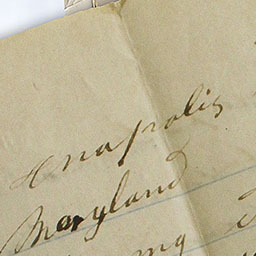 Anapolis
Maryland
my